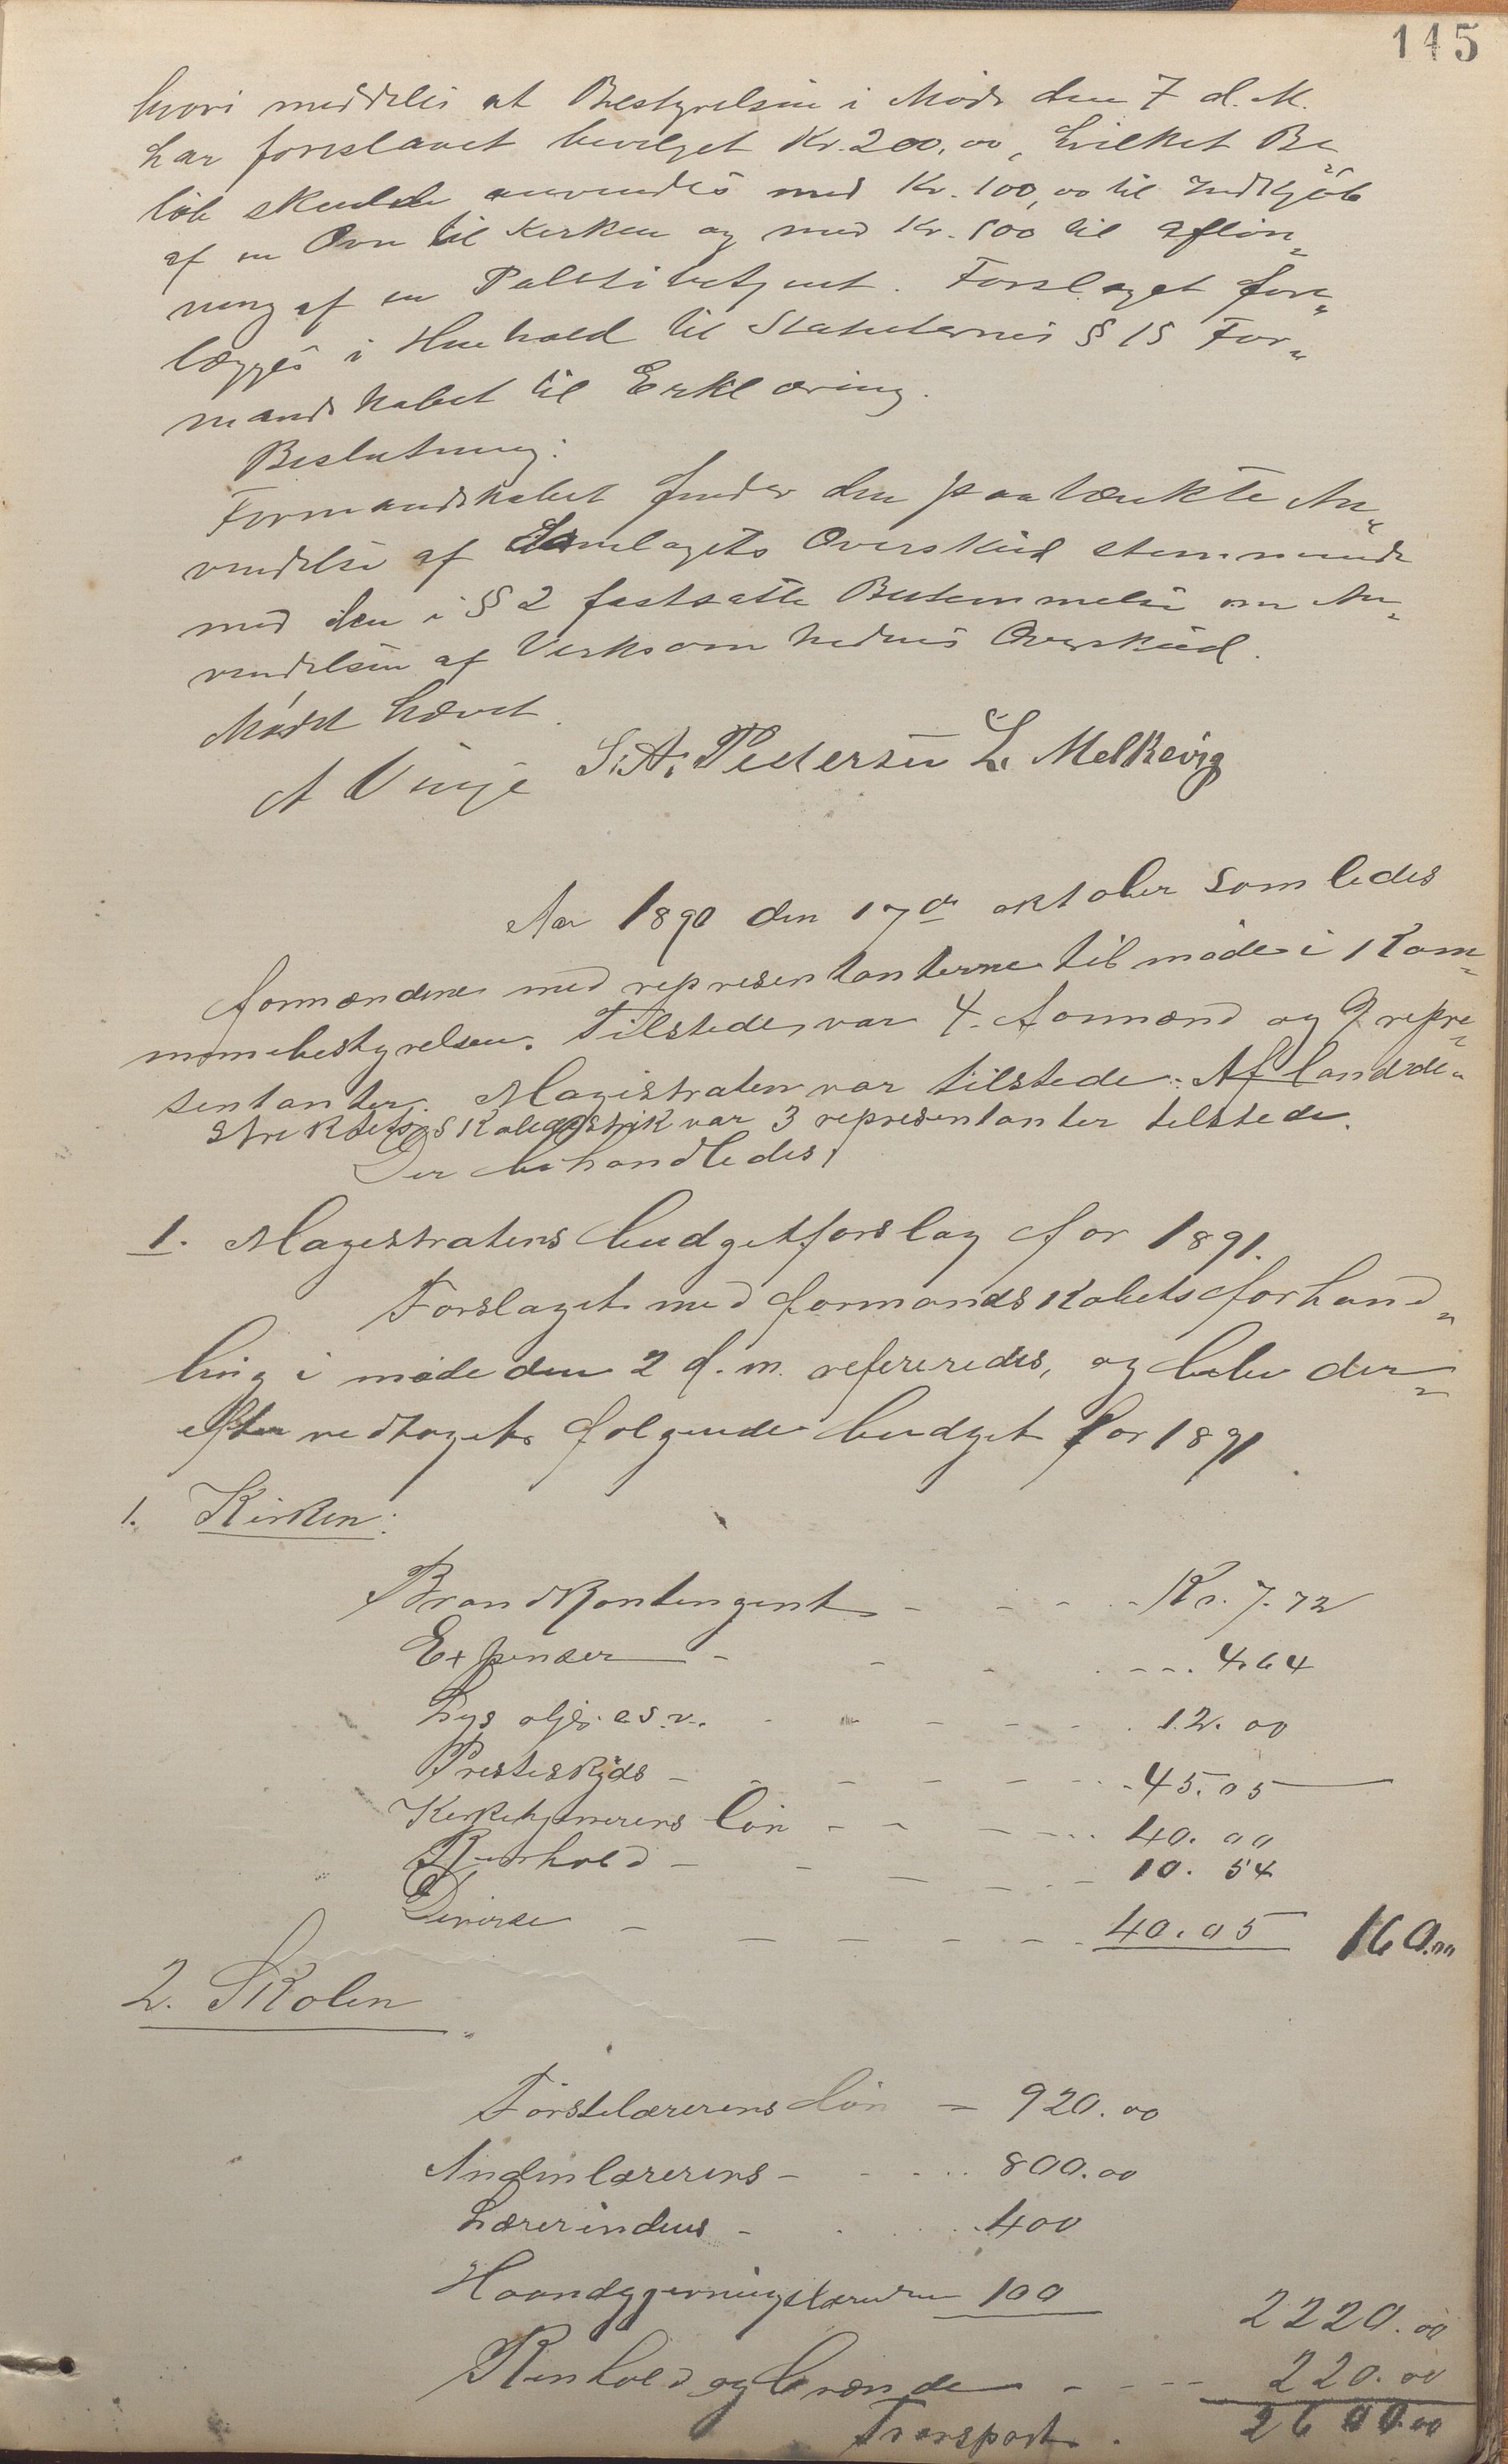 145
hvori meddeles at Bestyrelsen i Møde den 7 d. M.
har foreslaaet bevilget Kr. 200,00, hvilket Be„
løb skulde anvendes med Kr. 100,00 til Indkjøb
af en Ovn til Kirken og med Kr. 100 til afløn„
ning af en Politibetjent. Forslaget fore„
lægges i Henhold til Statuternes § 15 For„
mandskabet til Erklæring.
Beslutning:
Formandskabet finder den paatænkte An„
vendelse af Samlagets Overskud stemmende
med den i § 2 fastsatte Bestemmelse om An„
vendelsen af Virksomhedens Overskud.
Mødet hævet.
A Vinje S. A. Pedersen L. Melkevig
Aar 1890 den 17de oktober samledes
formændene med representanterne til møde i Kom„
munebestyrelsen. Tilstede var 4 formænd og 9 repre„
sentanter. Magistraten var tilstede. Af landdi„
striktets skoledistrik var 3 representanter tilstede.
Der behandledes:
1. Magistratens budgetforslag for 1891.
Forslaget med formandskabets forhand„
ling i møde den 2 d. m. refereredes, og blev der„
efter vedtaget følgende budget for 1891.
1. Kirken:
Brandkontingent - - - - Kr. 7.72
Expenser - - - - - - 4.64
Lys olje. o.s.v. - - - - - 12.00
Presteskyds - - - - - - 45.05
Kirketjenerens løn - - - - - 40.00
Renhold - - - - - 10.54
Diverse - - - - - - 40.05 160.00
2. Skolen
Førstelærerens løn - 920.00
Andenlærerens - - - - 800.00
Lærerindens - - - - 400
Haandgjerningslærerinden 100 2220.00
Renhold og brænde - - - - 220.00
Transport. 2600.00